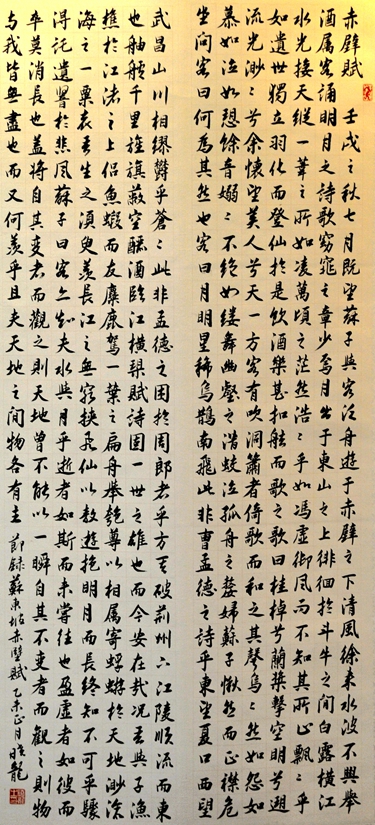 赤壁賦 壬戌之秋七月既望蘇子與客泛舟遊于赤壁之下清風徐來水波不興舉
酒屬客誦明月之詩歌窈窕之章少焉月出于東山之上徘徊於斗牛之間白露橫江
水光接天縱一葦之所如凌萬頃之茫然浩々乎如馮虛御風而不知其所止飄々乎
如遺世獨立羽化而登仙於是飲酒樂甚扣舷而歌之歌曰桂棹兮蘭槳擊空明兮溯
流光渺々兮余懷望美人兮天一方客有吹洞簫者倚歌而和之其聲烏々然如怨如
慕如泣如愬餘音嫋々不絕如縷舞幽壑之潛蛟泣孤舟之嫠婦蘇子愀然而正襟危
坐問客曰何為其然也客曰月明星稀烏鵲南飛此非曹孟德之詩乎東望夏口西望
武昌山川相繆鬱乎蒼々此非孟德之困於周郎者乎方其破荊州下江陵順流而東
也舳艫千里旌旗蔽空釃酒臨江橫槊賦詩固一世之雄也而今安在哉況吾與子漁
樵於江渚之上侶魚蝦而友麋鹿駕一葉之扁舟舉匏尊以相屬寄蜉蝣於天地渺滄
海之一粟哀吾生之須臾羨長江之無窮挾飛仙以敖遊抱明月而長終知不可乎驟
得託遺響於悲風蘇子曰客亦知夫水與月乎逝者如斯而未嘗往也盈虛者如彼而
卒莫消長也蓋將自其變者而觀之則天地曾不能以一瞬自其不變者而觀之則物
與我皆無盡也而又何羨乎且夫天地之間物各有主 節錄蘇東坡赤壁賦 乙未正月 曉龍